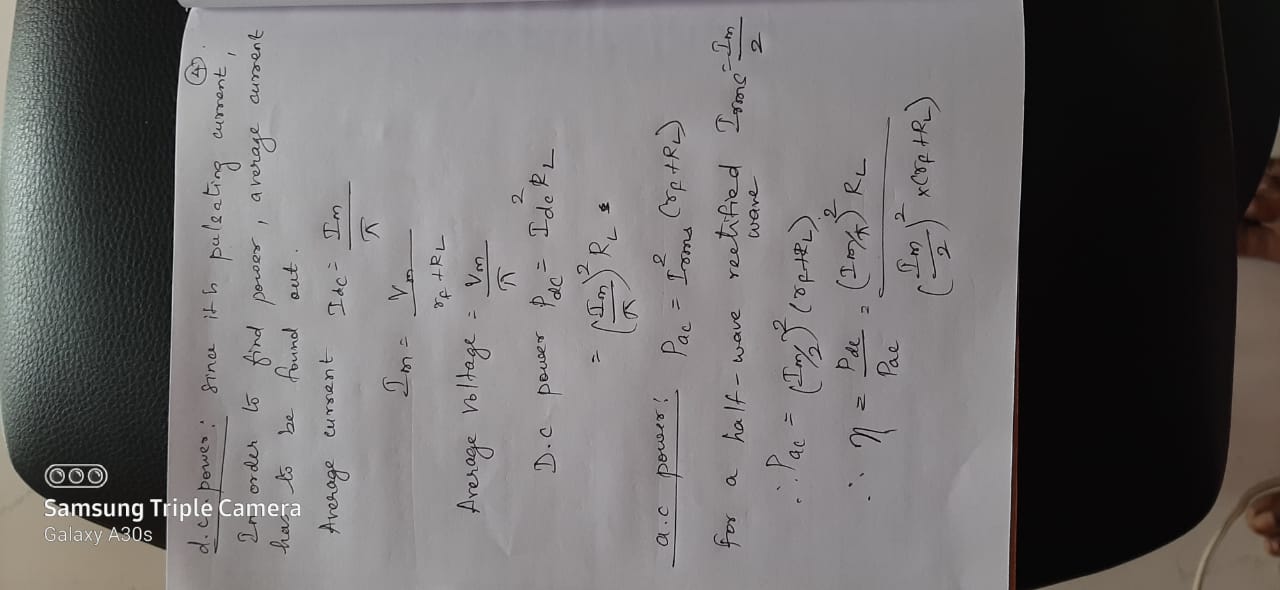 ④
d.c power: since it is pulsating current,
In order to find power, average current
has to be found out.
Average current Idc = Im/π
Im = Vm/(rf + RL)
Average voltage = Vm/π
D.C power Pdc = I²dc RL
= (Im/π)² RL
a.c power: Pac = I²rms (rf + RL)
for a half-wave rectified Irms = Im/2
wave
∴ Pac = (Im/2)² (rf+RL)
∴ η = Pdc/Pac = (Im/π)² RL / (Im/2)² × (rf+RL)
Samsung Triple Camera
Galaxy A30s